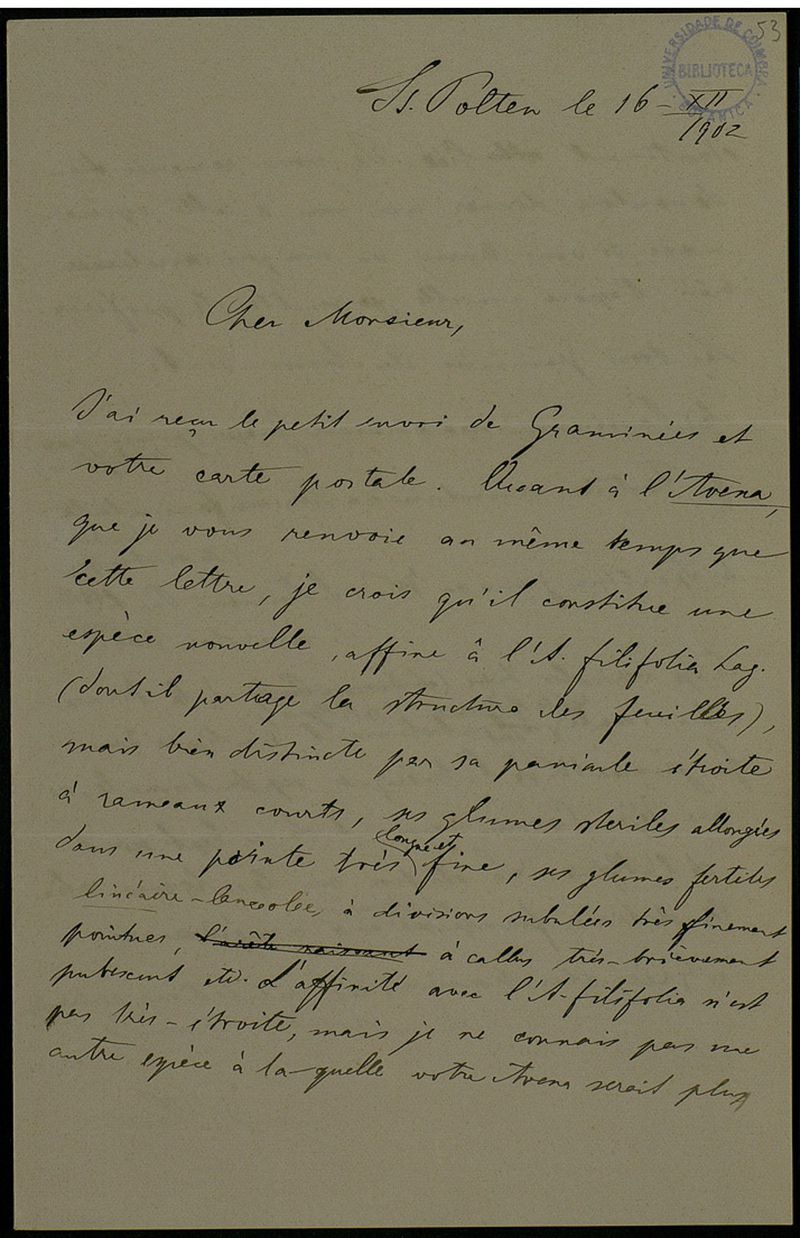 53
UNIVERSIDADE DE COIMBRA
BIBLIOTECA
BOTANICA
St. Pölten le 16 - XII
1902
Cher Monsieur,
J'ai reçu le petit envoi de Graminées et
votre carte postale. Quant à l'Avena,
que je vous renvoie au même temps que
cette lettre, je crois qu'il constitue une
espèce nouvelle, affine à l'A. filifolia Lag.
(dont il partage la structure des feuilles),
mais bien distincte par sa panicule étroite
à rameaux courts, ses glumes steriles allongées
dans une pointe très longue et fine, ses glumes fertiles
linéaire-lanceolées, à divisions subulées très finement
pointues, l'arête naissant à callus très-brièvement
pubescent etc. L'affinité avec l'A. filifolia n'est
pas très-étroite, mais je ne connais pas une
autre espèce à la-quelle votre Avena serait plus